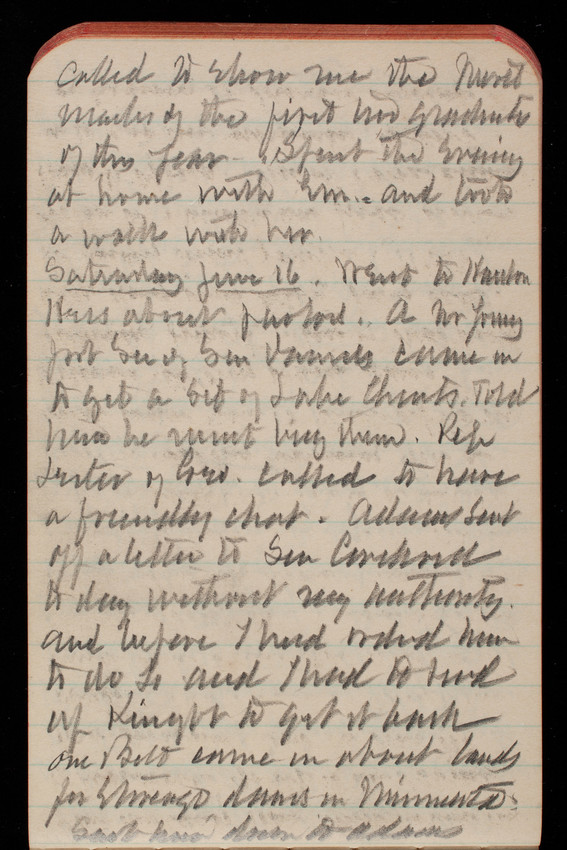 called to show me the merit
marks of the first two graduates
of this year. Spent the evening
at home with Em. and took
a walk with her.
Saturday June 16. Went to
Hess about . A Mr young
Sec of Sen came in
to get a set of Lake Charts. Told
him he must buy them. Rep
Lester of Geo. called to have
a friendly chat. Adams sent
off a letter to Sen
to day without my authority.
and before I had ordered him
to do so and I had to send
up Knight to get it back
one Belt came in about lands
for Storeage dams in Minnesota.
Sent him down to Adams